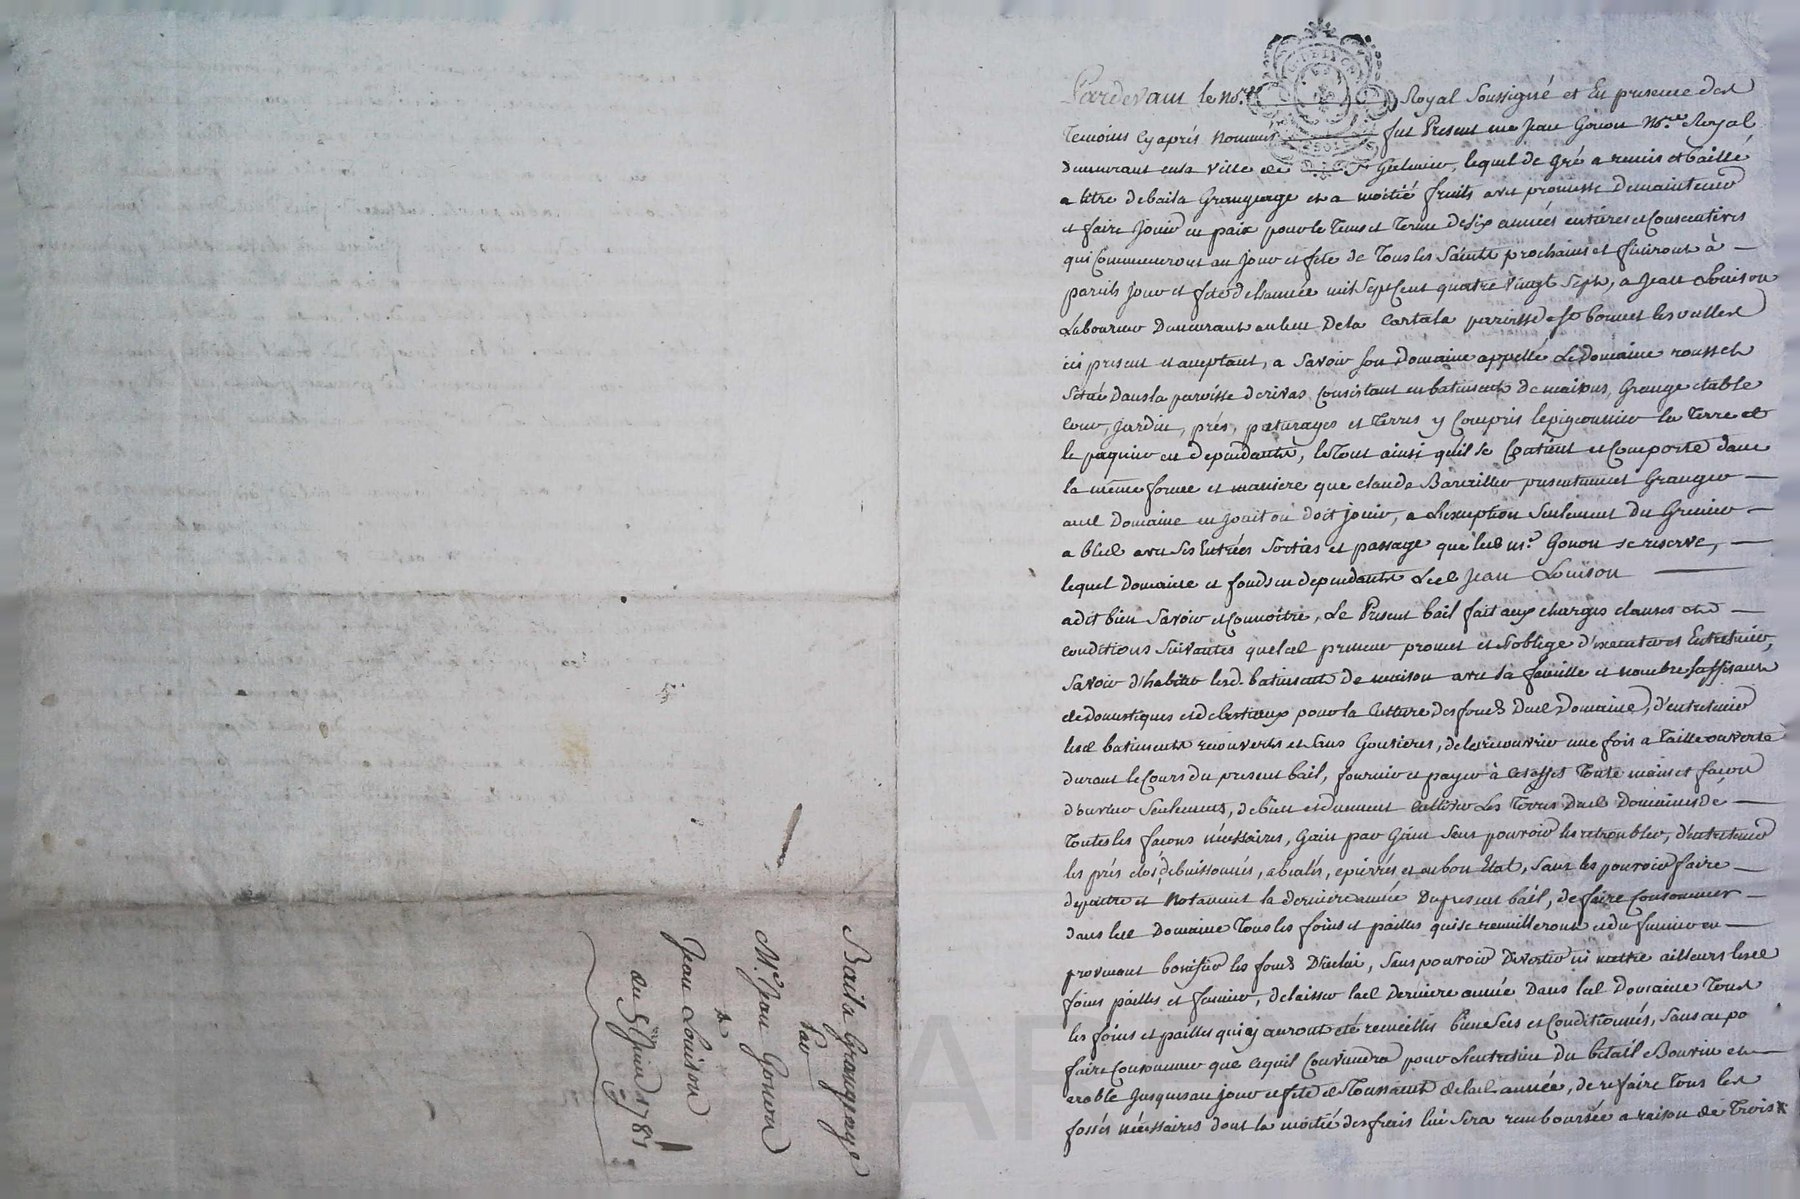 Bail a Grangeage
Par
Me. Jean Gonon
A
Jean Louison
du 5 Juin 1781
Pardevant le no.re Royal Soussigné et En presence des
temoins cy après Nommés fut Present me Jean Gonon No.re Royal
demeurant en la Ville de St Galmier, lequel de gré a remis et baillé
a titre de bail a Grangeage et a moitié fruits avec promesse de maintenir
et faire Jouir en paix pour le tems et terme de six années entieres et Consecutives
qui Commenceront au Jour et fete de tous les Saints prochains et finiront à
pareils Jour et fete de l'année mil Sept Cent quatre Vingt Sept, a Jean Louison
Laboureur demeurant au lieu de la Cortala paroisse St bonnet les oulles
ici present et acceptant, a Savoir son domaine appellé Le domaine roussel
Situé dans la paroisse de rivas Consistant en batiments de maisons, Grange etable
Cour, Jardin, prés, paturages et terres y Compris le pigeonnier la terre et
le paquier en dependants, le tout ainsi qu'il se Contient et Comporte dans
la même forme et maniere que claude Barailler presentement Granger
aud Domaine en Jouit ou doit jouir, a L'exception Seulement du Grenier
a bled avec ses Entrées Sorties et passage que led m.e Gonon se reserve,
lequel domaine et fonds en dependants Led Jean Louison
a dit bien Savoir et Connoitre, Le Present bail fait aux charges clauses et
conditions Suivantes que led preneur promet et s'oblige d'executer et Entretenir,
Savoir d'habiter lesd. batiments de maison avec sa famille et nombre suffisant
de domestiques et de bestiaux pour la Culture des fonds dud Domaine, d'entretenir
lesd batiments recouverts et sans Goutieres, de les recouvrir une fois a taille ouverte
durant le Cours du present bail, fournir et payer à cet effet toute mains et façon
d'ouvrier Seulement, de bien et duement Cultiver Les terres dud Domaine de
toutes les façons nécessaires, Gain par Gain Sans pouvoir les retroubler, d'entretenir
les prés clos, debuissonnés, abealés, epierrés et en bon Etat, sans les pouvoir faire
depaitre et Notamment la derniere année Du present bail, de faire Consommer
dans led Domaine tous les foins et pailles qui se recueilleront et du fumier en
provenant bonifier les fonds D'icelui, Sans pouvoir Divertir ni mettre ailleurs lesd
foins pailles et fumier, de laisser lad derniere année Dans led Domaine tous
les foins et pailles qui y auront eté recueillis bien Secs et Conditionnés, sans en po
faire Consommer que ce qu'il Conviendra pour L'entretien du betail Bouvin et
arable Jusques au jour et fete de Toussaint de lad année, de refaire tous les
fossés nécessaires dont la moitié des frais lui Sera remboursée a raison de trois